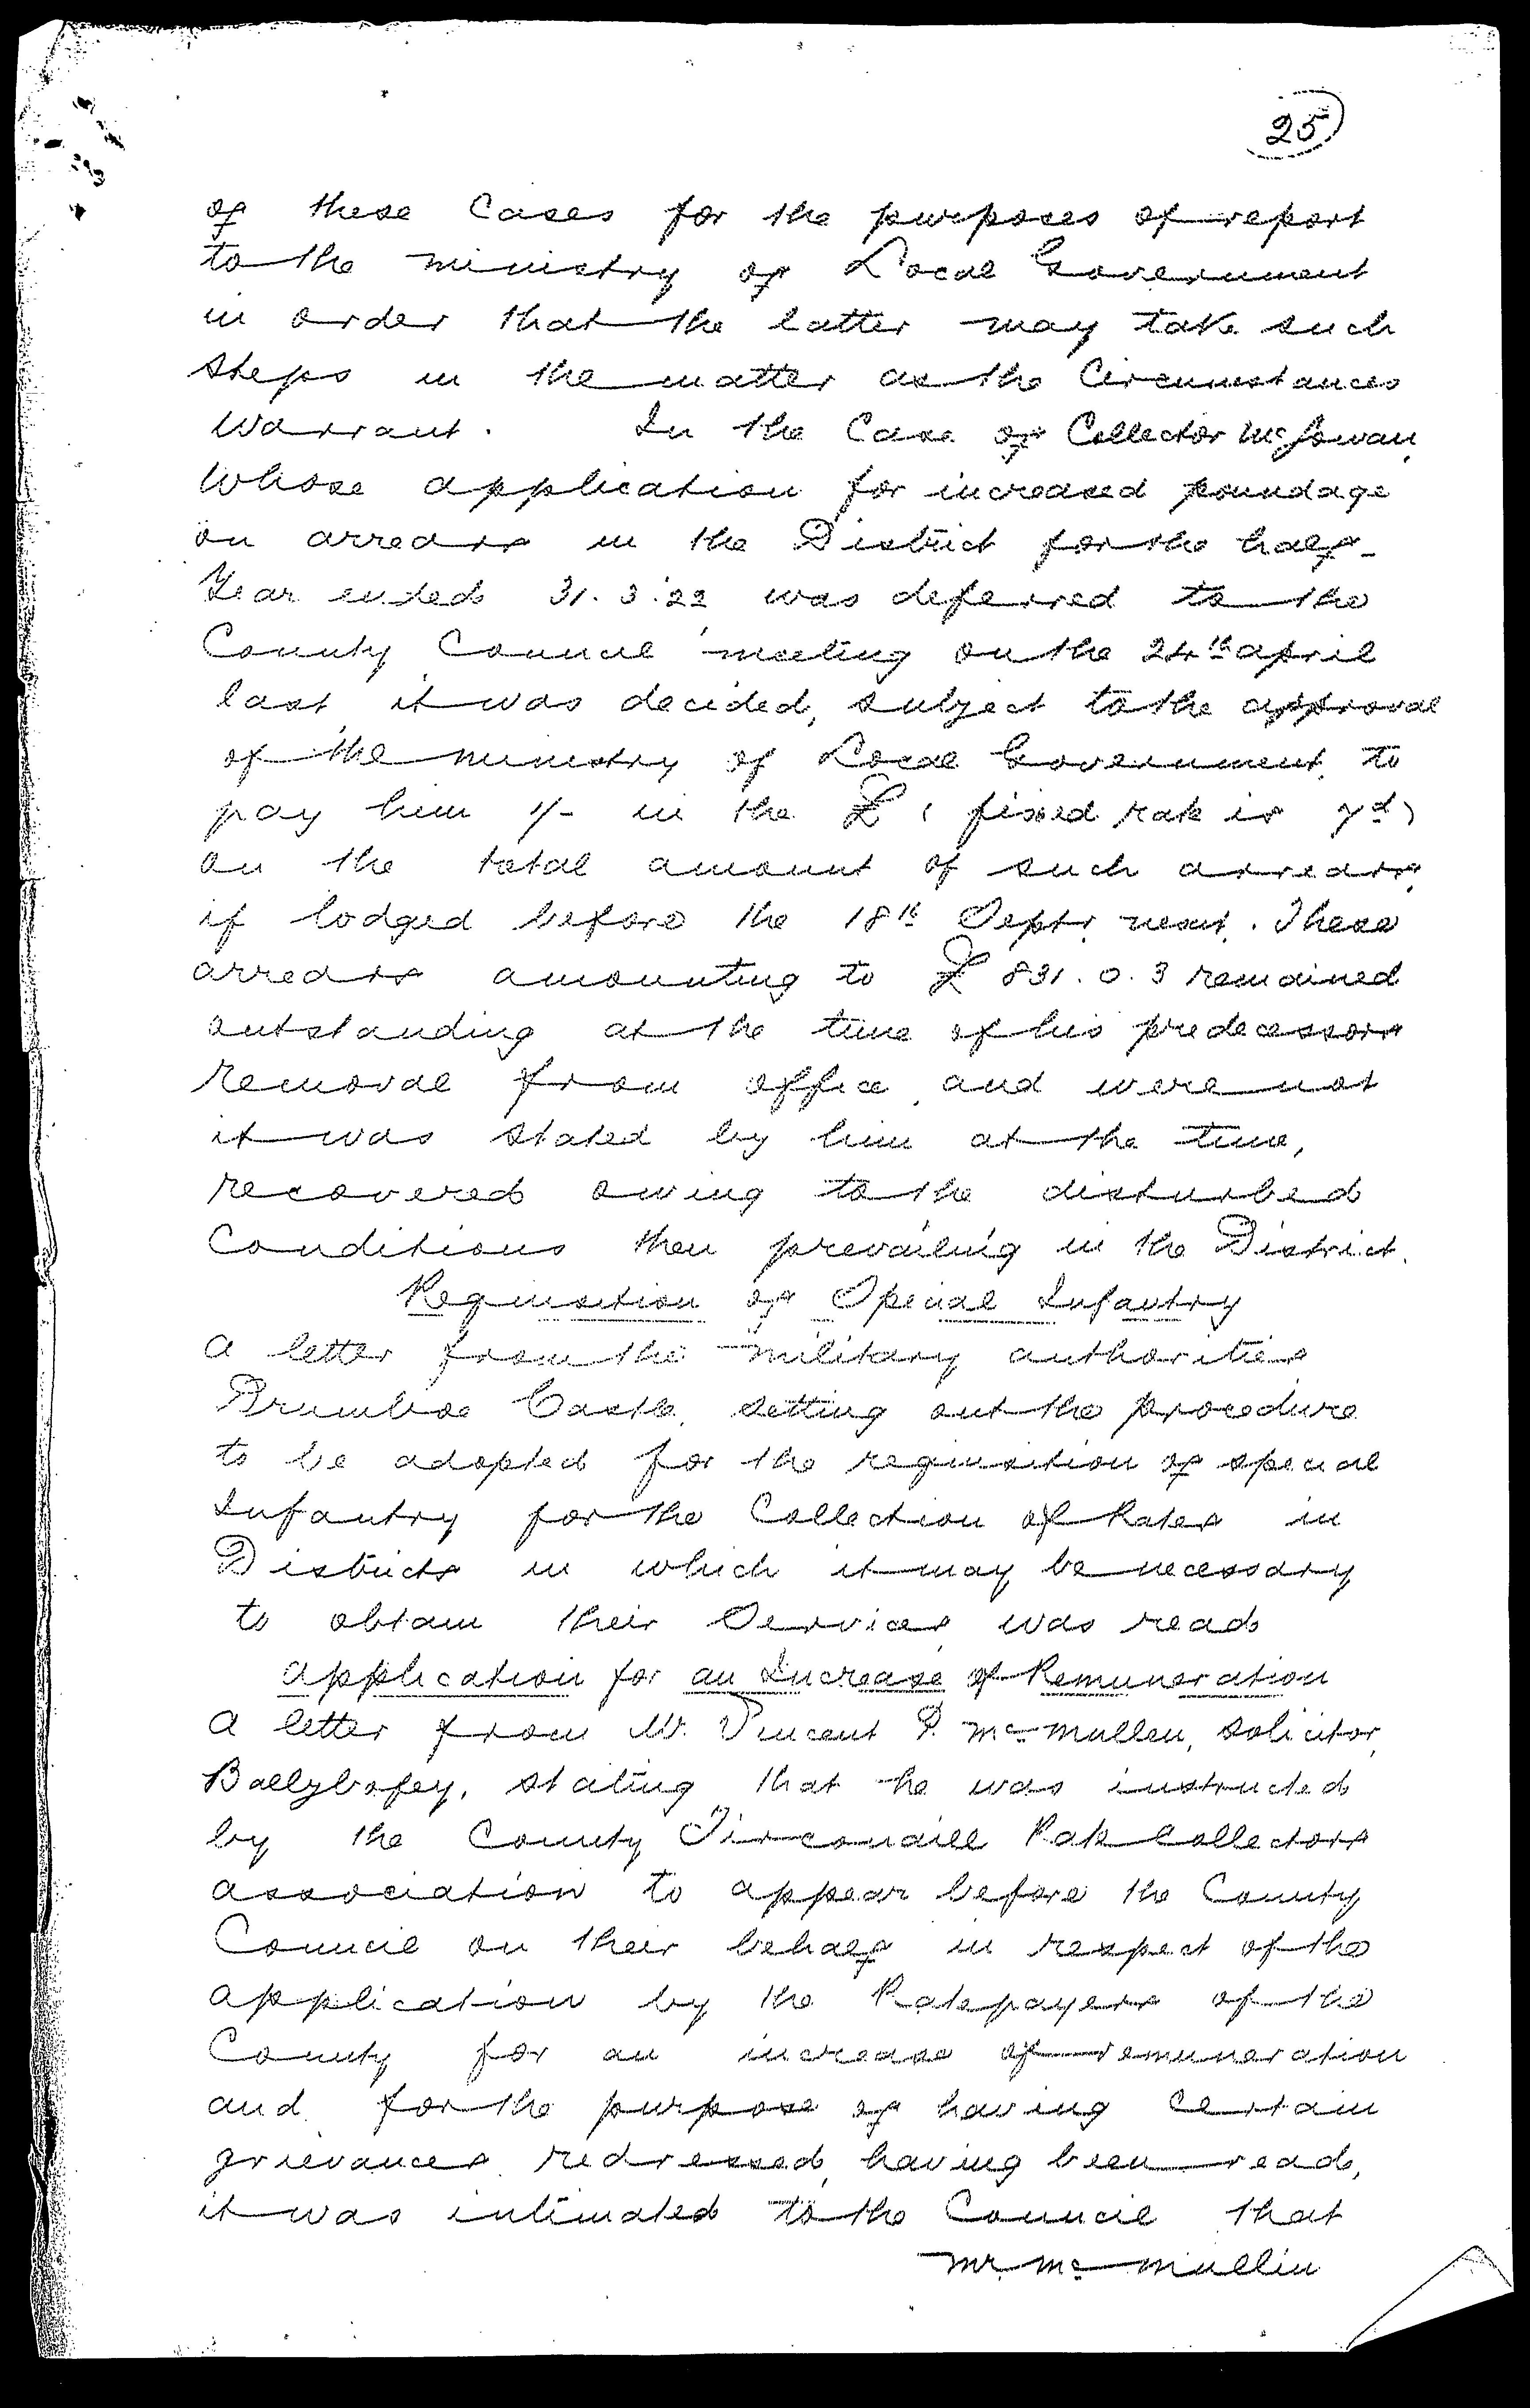 25
of these Cases for the purposes of report
to the ministry of Local Government
in order that the latter may take such
steps in the matter as the Circumstances
Warrant. In the Case of Collector McGowan,
Whose application for increased poundage
on arrears in the District for the half-
Year ended 31.3.22 was deferred to the
County Council meeting on the 24th april
last, it was decided, subject to the approval
of the ministry of Local Government, to
pay him 1/- in the £ (fixed rate is 7d)
on the total amount of such arrears,
if lodged before the 18th Septr. next. These
arrears amounting to £831.0.3 remained
outstanding at the time of his predecessors
removal from office, and were not
it was stated by him at the time,
recovered owing to the disturbed
Conditions then prevailing in the District.
Requisition of Special Infantry
a letter from the military authorities
Drumboe Castle, setting out the procedure
to be adopted for the requisition of special
Infantry for the Collection of Rates in
Districts in which it may be necessary
to obtain their Services, was read
application for an Increase of Remuneration
a letter from Mr. Vincent P. McMullen, solicitor,
Ballybofey, stating that he was instructed
by the County Tirconaill Rate Collectors
association to appear before the County
Council on their behalf in respect of the
application by the Ratepayers of the
County for an increase of remuneration
and for the purpose of having certain
grievances redressed, having been read,
it was intimated to the Council that
Mr. McMullin